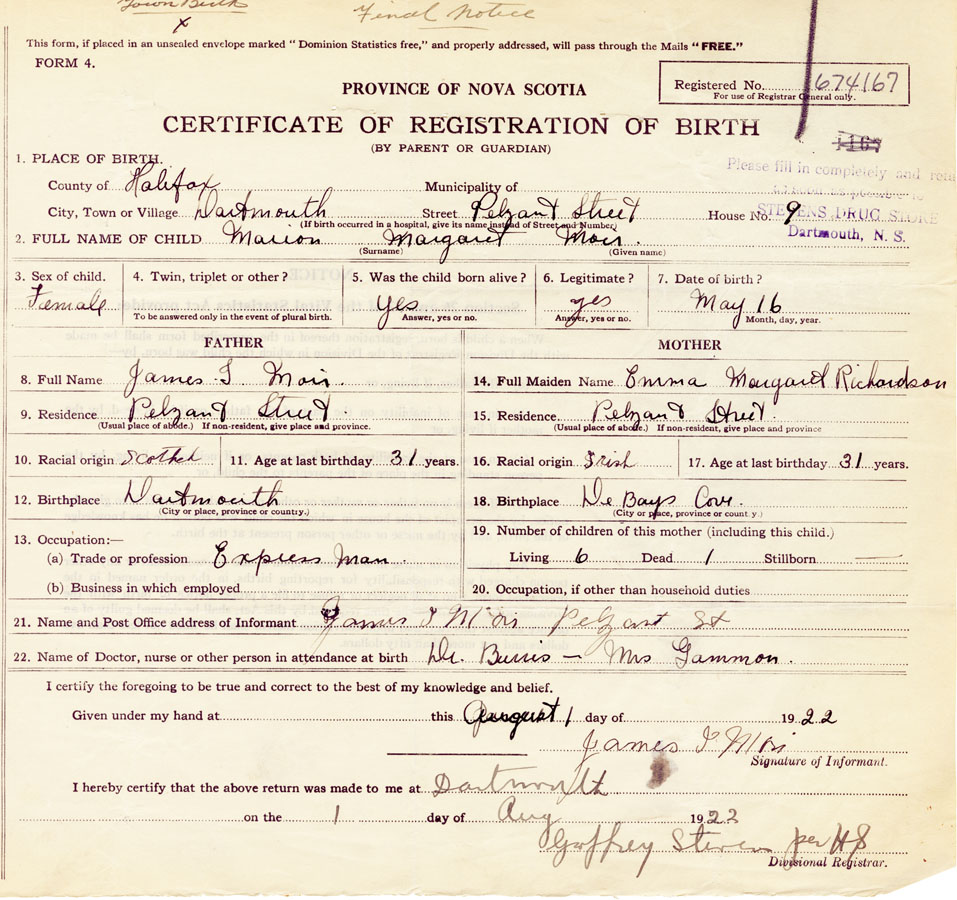 Town Birth
x
Final Notice
This form, if placed in an unsealed envelope marked "Dominion Statistics free," and properly addressed, will pass through the Mails "FREE."
FORM 4.
Registered No. 674167
For use of Registrar General only.
PROVINCE OF NOVA SCOTIA
CERTIFICATE OF REGISTRATION OF BIRTH
(BY PARENT OR GUARDIAN)
Please fill in completely and
STEVENS DRUG STORE
Dartmouth, N. S.
1. PLACE OF BIRTH.
County of Halifax Municipality of
City, Town or Village Dartmouth Street Pelzant Street House No. 9
(If birth occurred in a hospital, give its name instead of Street and Number)
2. FULL NAME OF CHILD Marion Margaret Moir.
(Surname) (Given name)
3. Sex of child. 4. Twin, triplet or other? 5. Was the child born alive? 6. Legitimate? 7. Date of birth?
Female Yes yes May 16
To be answered only in the event of plural birth. Answer, yes or no. Answer, yes or no. Month, day, year.
FATHER MOTHER
8. Full Name James I Moir. 14. Full Maiden Name Emma Margaret Richardson
9. Residence Pelzant Street. 15. Residence. Pelzant Street.
(Usual place of abode.) If non-resident, give place and province. (Usual place of abode.) If non-resident, give place and province
10. Racial origin Scotch 11. Age at last birthday 31 years. 16. Racial origin Irish 17. Age at last birthday 31 years.
12. Birthplace Dartmouth 18. Birthplace De Bays Cove.
(City or place, province or country.) (City or place, province or country.)
13. Occupation:— 19. Number of children of this mother (including this child.)
(a) Trade or profession Express Man. Living 6 Dead 1 Stillborn —
(b) Business in which employed 20. Occupation, if other than household duties
21. Name and Post Office address of Informant James I Moir Pelzant St
22. Name of Doctor, nurse or other person in attendance at birth Dr. Burris — Mrs Gammon.
I certify the foregoing to be true and correct to the best of my knowledge and belief.
Given under my hand at this August 1 day of 1922
James I Moir
Signature of Informant.
I hereby certify that the above return was made to me at Dartmouth
on the 1 day of Aug 1922
Goffrey Stevens per HS
Divisional Registrar.